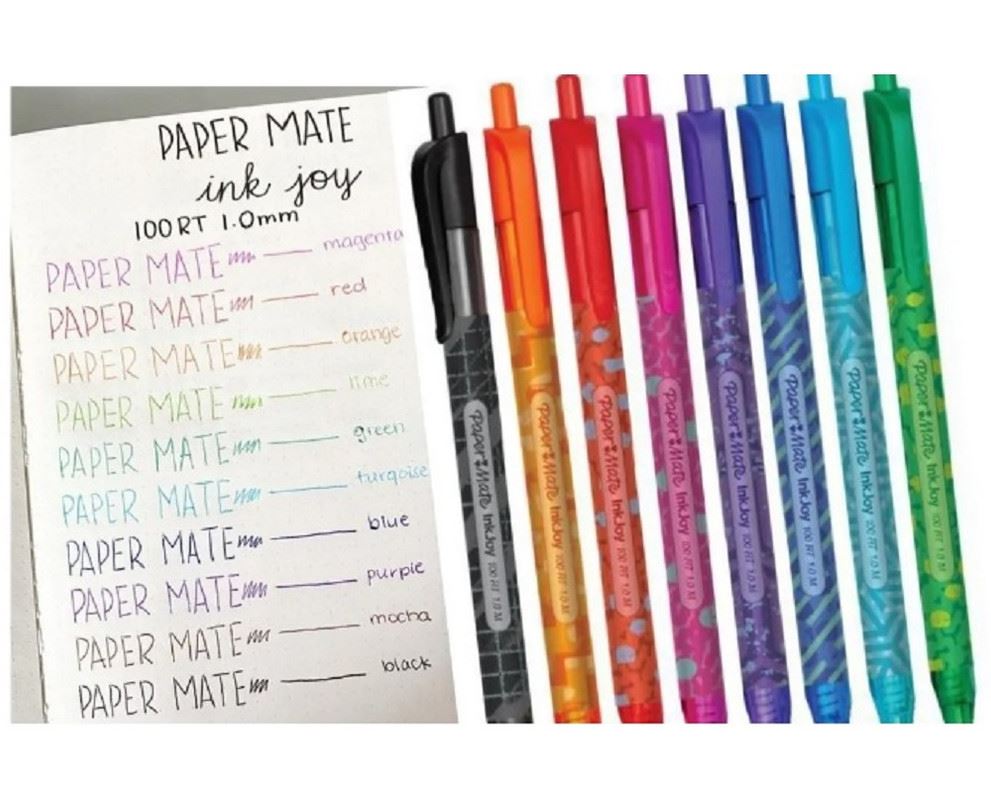 PAPER MATE
ink joy
100 RT 1.0mm
PAPER MATE magenta
PAPER MATE red
PAPER MATE orange
PAPER MATE lime
PAPER MATE green
PAPER MATE turqoise
PAPER MATE blue
PAPER MATE purple
PAPER MATE mocha
PAPER MATE black
Paper Mate InkJoy 100 RT 1.0 M
Paper Mate InkJoy 100 RT 1.0 M
Paper Mate InkJoy 100 RT 1.0 M
Paper Mate InkJoy 100 RT 1.0 M
Paper Mate InkJoy 100 RT 1.0 M
Paper Mate InkJoy 100 RT 1.0 M
Paper Mate InkJoy 100 RT 1.0 M
Paper Mate InkJoy 100 RT 1.0 M